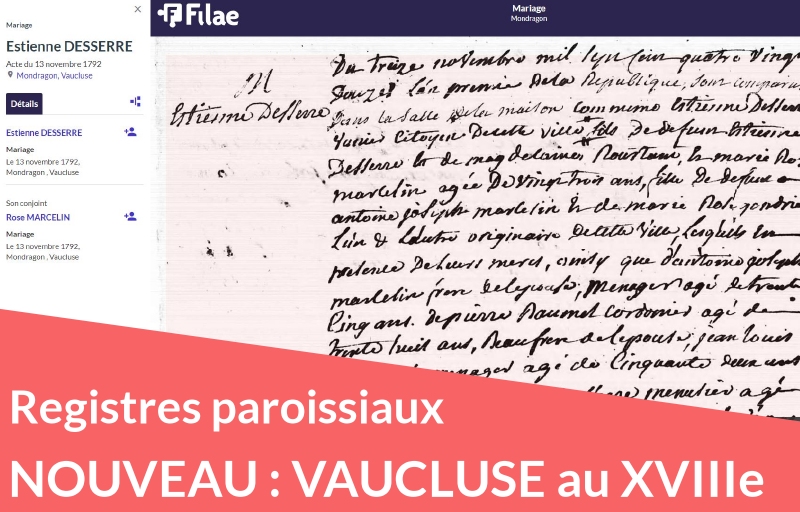 Mariage
Estienne DESSERRE
Acte du 13 novembre 1792
Mondragon, Vaucluse
Détails
Estienne DESSERRE
Mariage
Le 13 novembre 1792,
Mondragon , Vaucluse
Son conjoint
Rose MARCELIN
Mariage
Le 13 novembre 1792,
Mondragon , Vaucluse
Filae
Mariage
Mondragon
M
Estienne Desserre
Du treize novembre mil sept cent quatre vingt
Douze l'an premier de la Republique, sont comparus
Dans la Salle de la maison commune Estienne Desserre
citoyen De cette ville fils De defunt Estienne
Desserre et de magdelaine Roustan, et marie Ro
martelin agée De vingt trois ans, fille De defunt
antoine joseph martelin et de marie Rose
L'un & L'autre originaire De cette ville Lesquels en
presence De Leurs meres, ainsy que d'antoine joseph
martelin frere de lepouse, menager agé de trente
Cinq ans. de pierre Daumet Cordonier agé de
trente huit ans, Beaufrere de lepouse, jean louis
menager agé de Cinquante deux ans
menusier agé
Registres paroissiaux
NOUVEAU : VAUCLUSE au XVIIIe